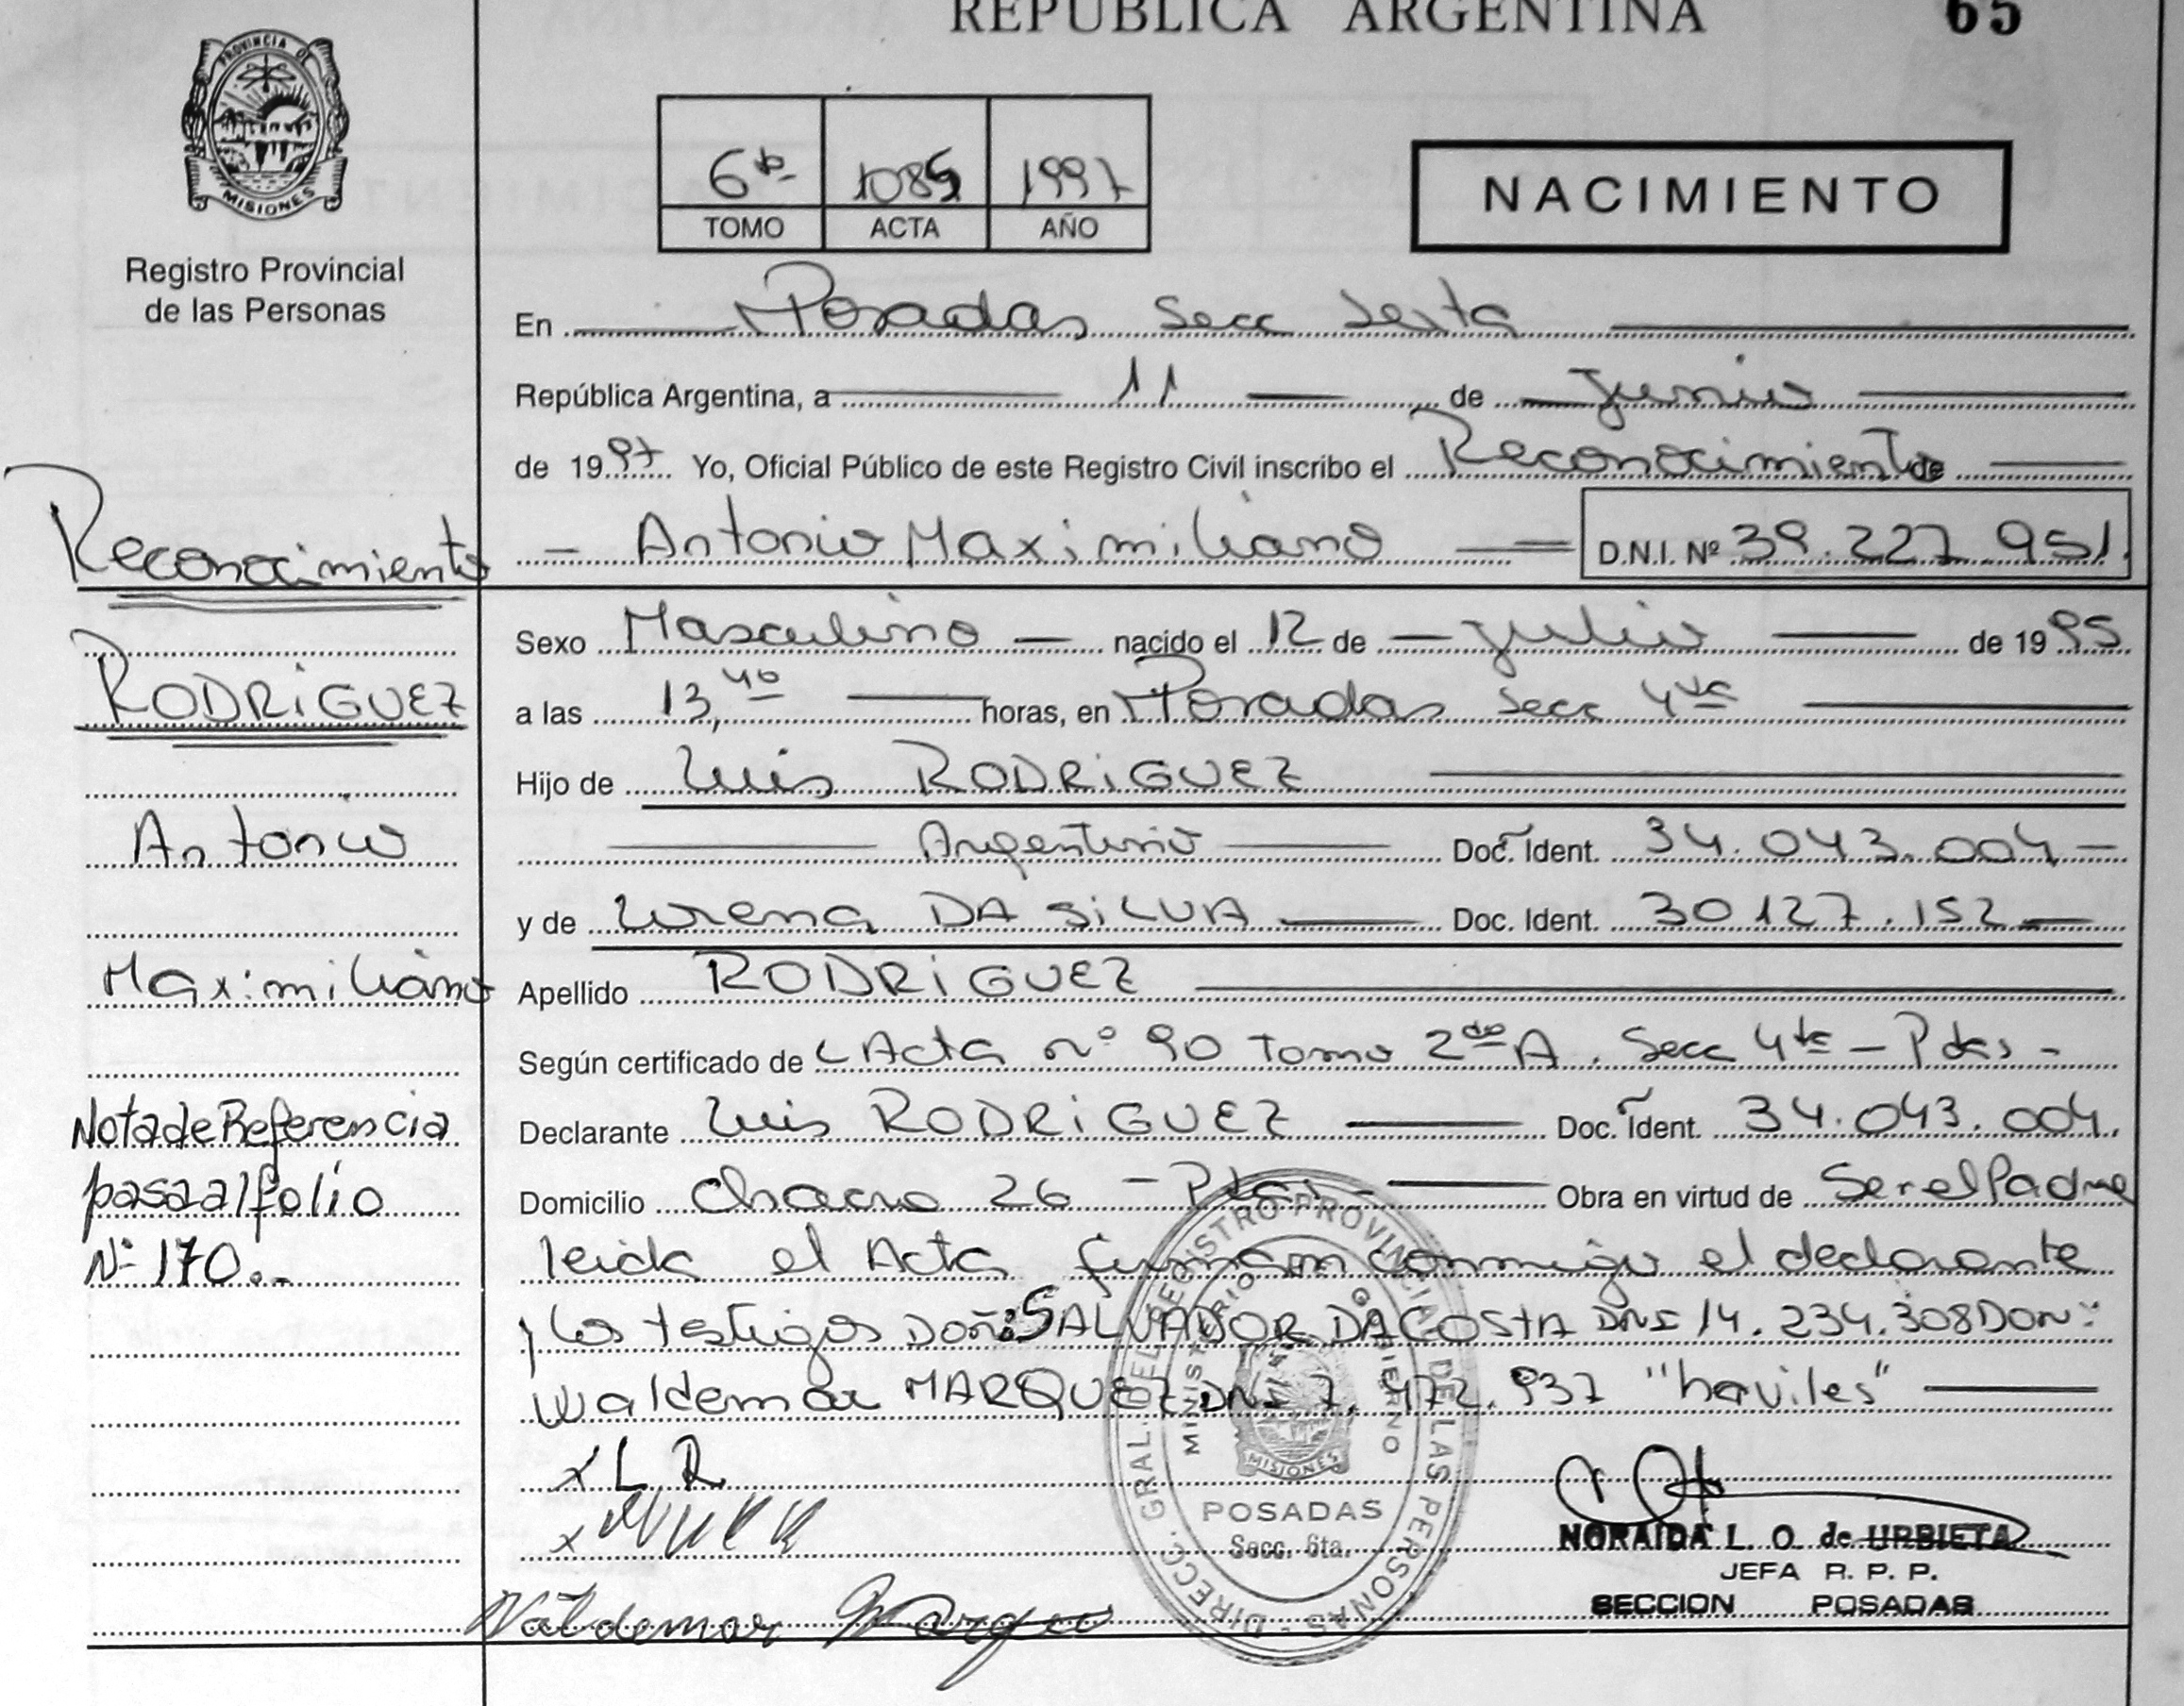 REPUBLICA ARGENTINA
65
PROVINCIA DE
MISIONES
Registro Provincial
de las Personas
6to 1085 1997
TOMO ACTA AÑO
NACIMIENTO
En Posadas Secc Sexta
República Argentina, a 11 de Junio
de 1997 Yo, Oficial Público de este Registro Civil inscribo el Reconocimiento de
Antonio Maximiliano D.N.I. Nº 39.227.951.
Reconocimiento
RODRIGUEZ
Antonio
Maximiliano
Nota de Referencia
pasa al folio
Nº 170..
Sexo Masculino nacido el 12 de Julio de 1995
a las 13,40 horas, en Posadas Secc 4ta
Hijo de Luis RODRIGUEZ
Argentino Doc. Ident. 34.043.004
y de Lorena DA SILVA Doc. Ident. 30127.152
Apellido RODRIGUEZ
Según certificado de Acta nº 90 Tomo 2do A. Secc 4ta - Pdas -
Declarante Luis RODRIGUEZ Doc. Ident. 34.043.004.
Domicilio Chacra 26 - Pdas - Obra en virtud de Ser el Padre
leida el Acta firman conmigo el declarante
y los testigos Don: SALVADOR DACOSTA DNI 14.234.308 DON:
Waldemar MARQUEZ DNI 7.472.937 "haviles"
x L R
x
Waldemar Marquez
DIRECC. GRAL. DEL REGISTRO PROVINCIAL DE LAS PERSONAS
MINISTERIO DE GOBIERNO
MISIONES
POSADAS
Secc. 6ta.
NORAIDA L. O. de URBIETA
JEFA R. P. P.
SECCION POSADAS